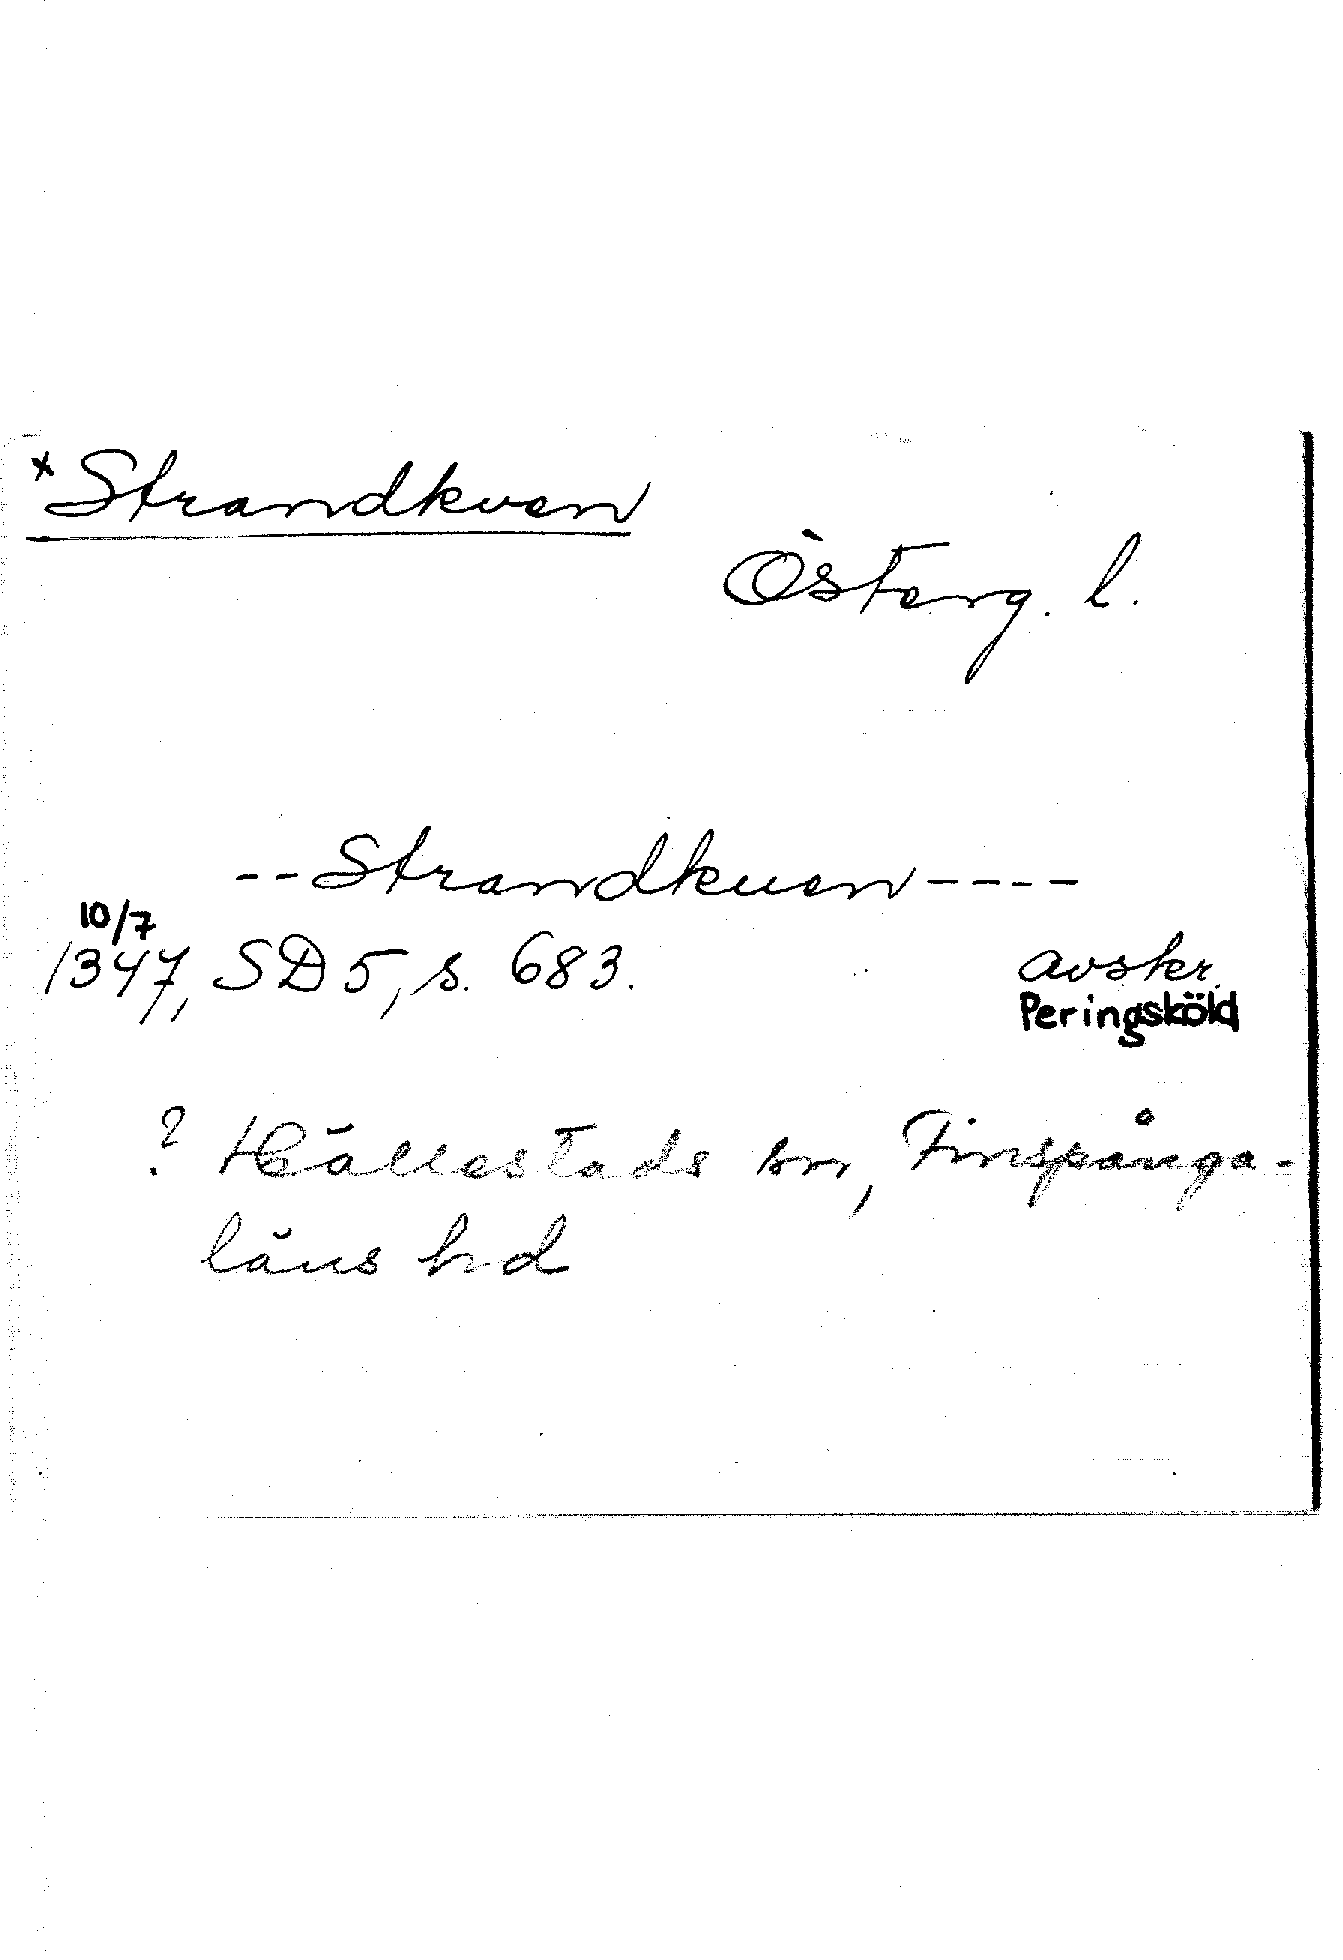 *Strandkven
Österg. l.
--Strandkuen----
10/7
1347, SD 5, s. 683.
avskr.
Peringsköld
? Hällestads sn, Finspånga-
läns hd